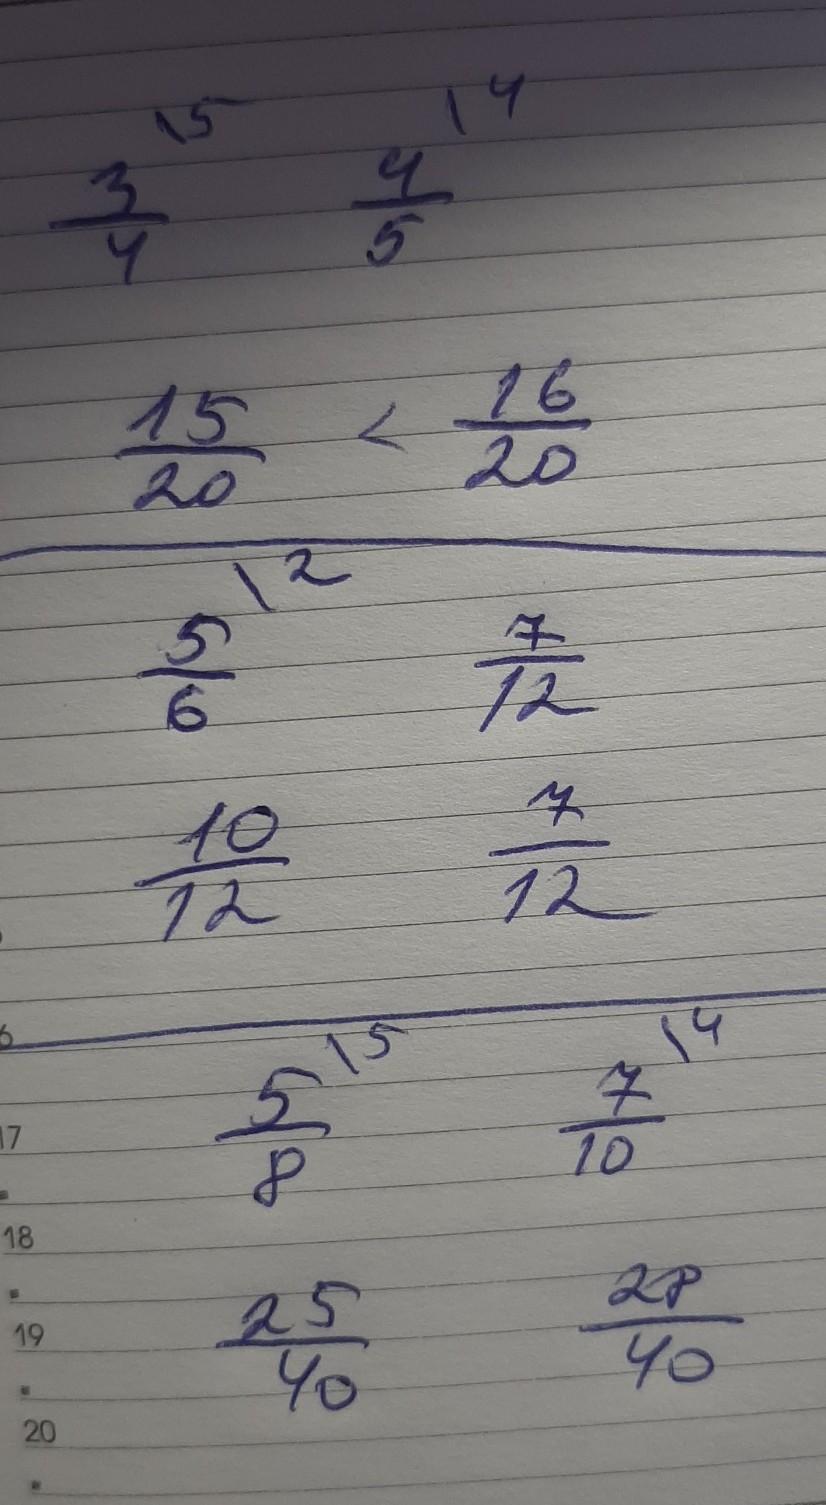 \5 \4
3/4 4/5
15/20 < 16/20
\2
5/6 7/12
10/12 7/12
6
\5 \4
5/8 7/10
17
18
25/40 28/40
19
20